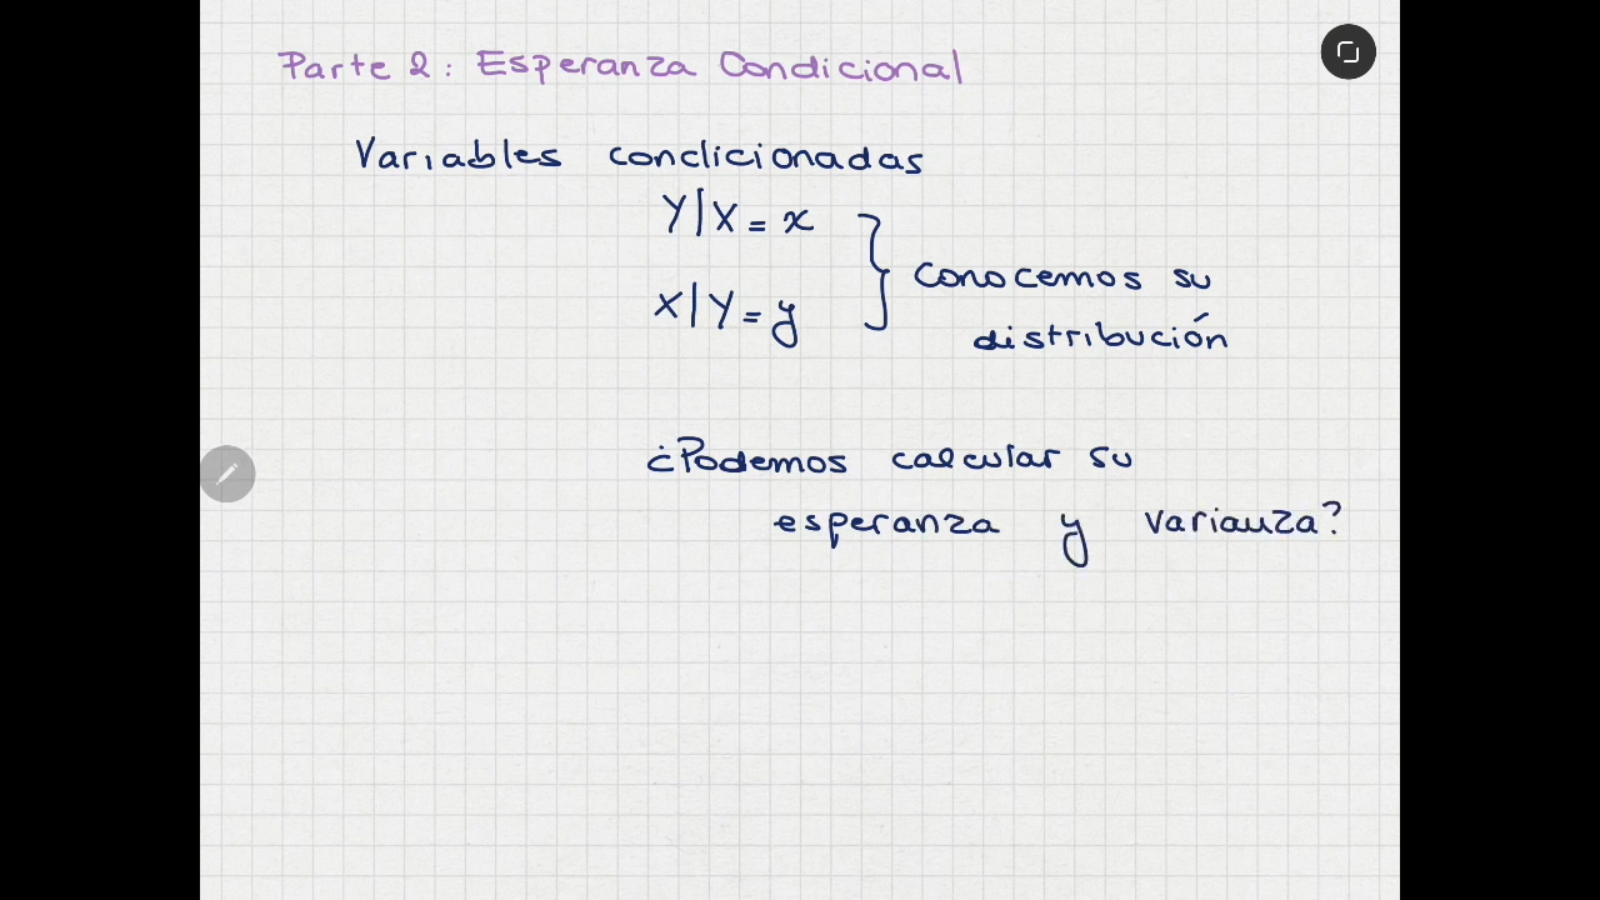 Parte 2: Esperanza Condicional
Variables condicionadas
Y|X = x
X|Y = y
Conocemos su
distribución
¿Podemos calcular su
esperanza y varianza?